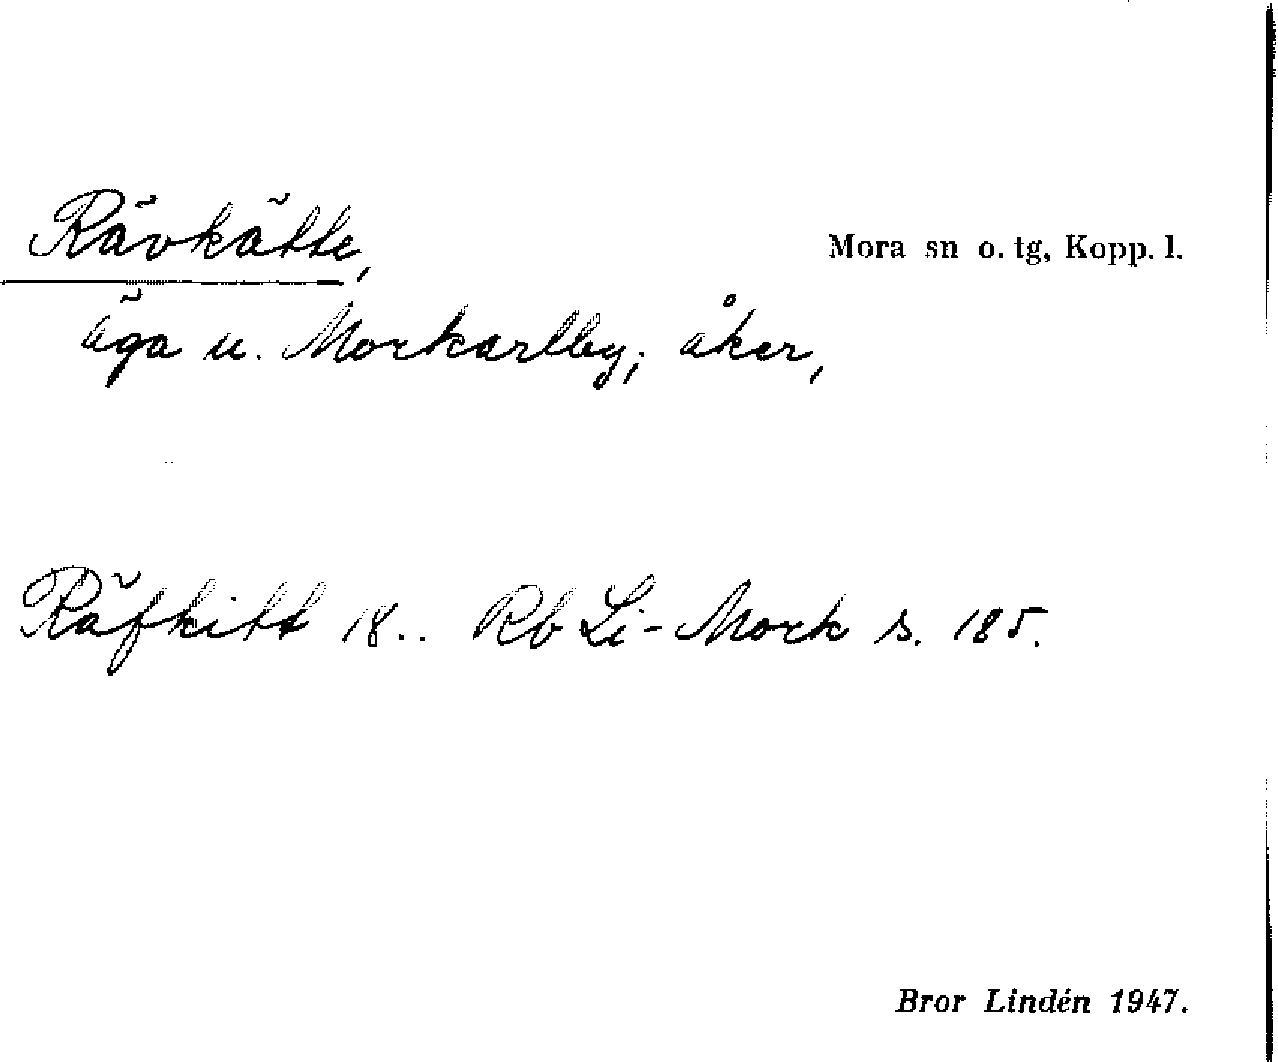 Rävkätte,
Mora sn o. tg, Kopp. l.
äga u. Morkarlby; åker,
Räfkitt 18.. Rb Li-Mork s. 185.
Bror Lindén 1947.